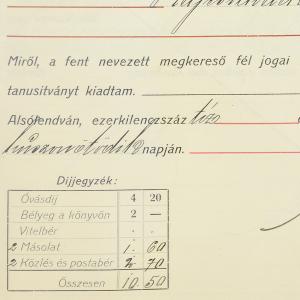 Miről, a fent nevezett megkereső fél jogai
tanusitványt kiadtam.
Alsólendván, ezerkilenczszáz tiz
huszonötödik napján.
Díjjegyzék:
Óvásdíj 4 20
Bélyeg a könyvön 2 —
Vitelbér . .
2 Másolat 1. 60
2 Közlés és postabér 2 70
Összesen 10 50